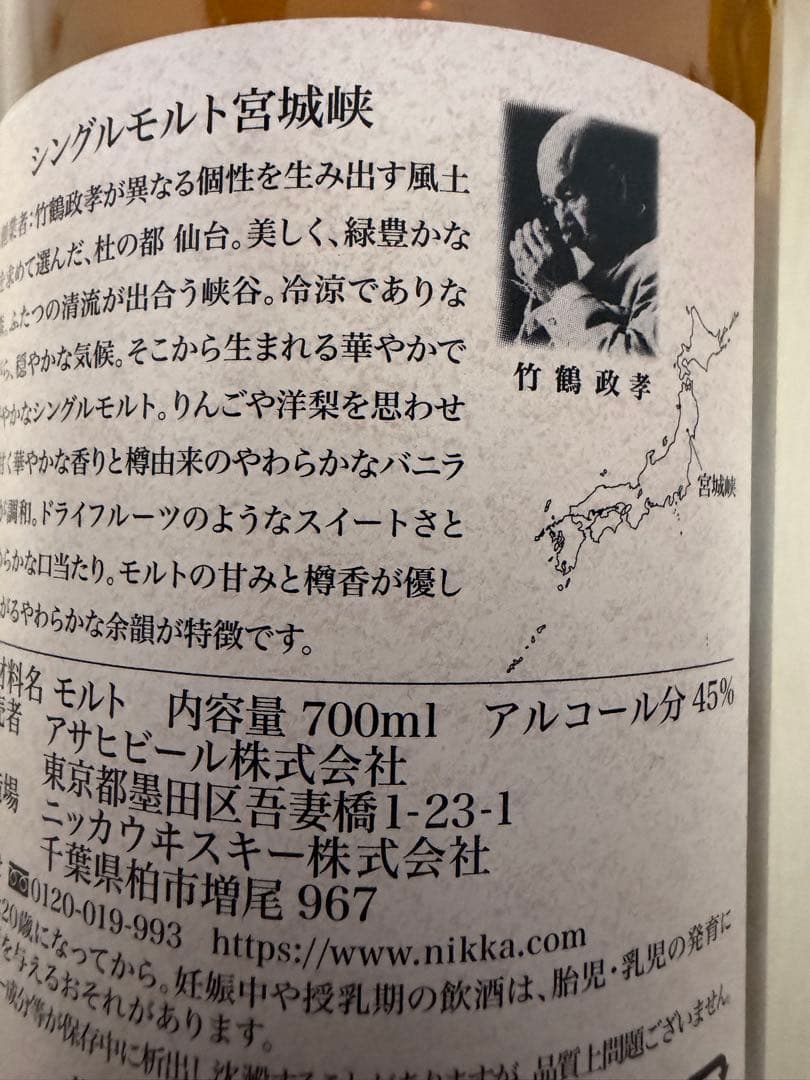 シングルモルト宮城峡
業者:竹鶴政孝が異なる個性を生み出す風土
を求めて選んだ、杜の都 仙台。美しく、緑豊かな
ふたつの清流が出合う峡谷。冷涼でありな
ら、穏やかな気候。そこから生まれる華やかで
やかなシングルモルト。りんごや洋梨を思わせ
く華やかな香りと樽由来のやわらかなバニラ
が調和。ドライフルーツのようなスイートさと
らかな口当たり。モルトの甘みと樽香が優し
がるやわらかな余韻が特徴です。
竹鶴政孝
宮城峡
材料名 モルト 内容量 700ml アルコール分 45%
者 アサヒビール株式会社
東京都墨田区吾妻橋1-23-1
場 ニッカウヰスキー株式会社
千葉県柏市増尾 967
0120-019-993 https://www.nikka.com
20歳になってから。妊娠中や授乳期の飲酒は、胎児・乳児の発育に
を与えるおそれがあります。
成分等が保存中に析出し沈澱することがありますが、品質上問題ございません。